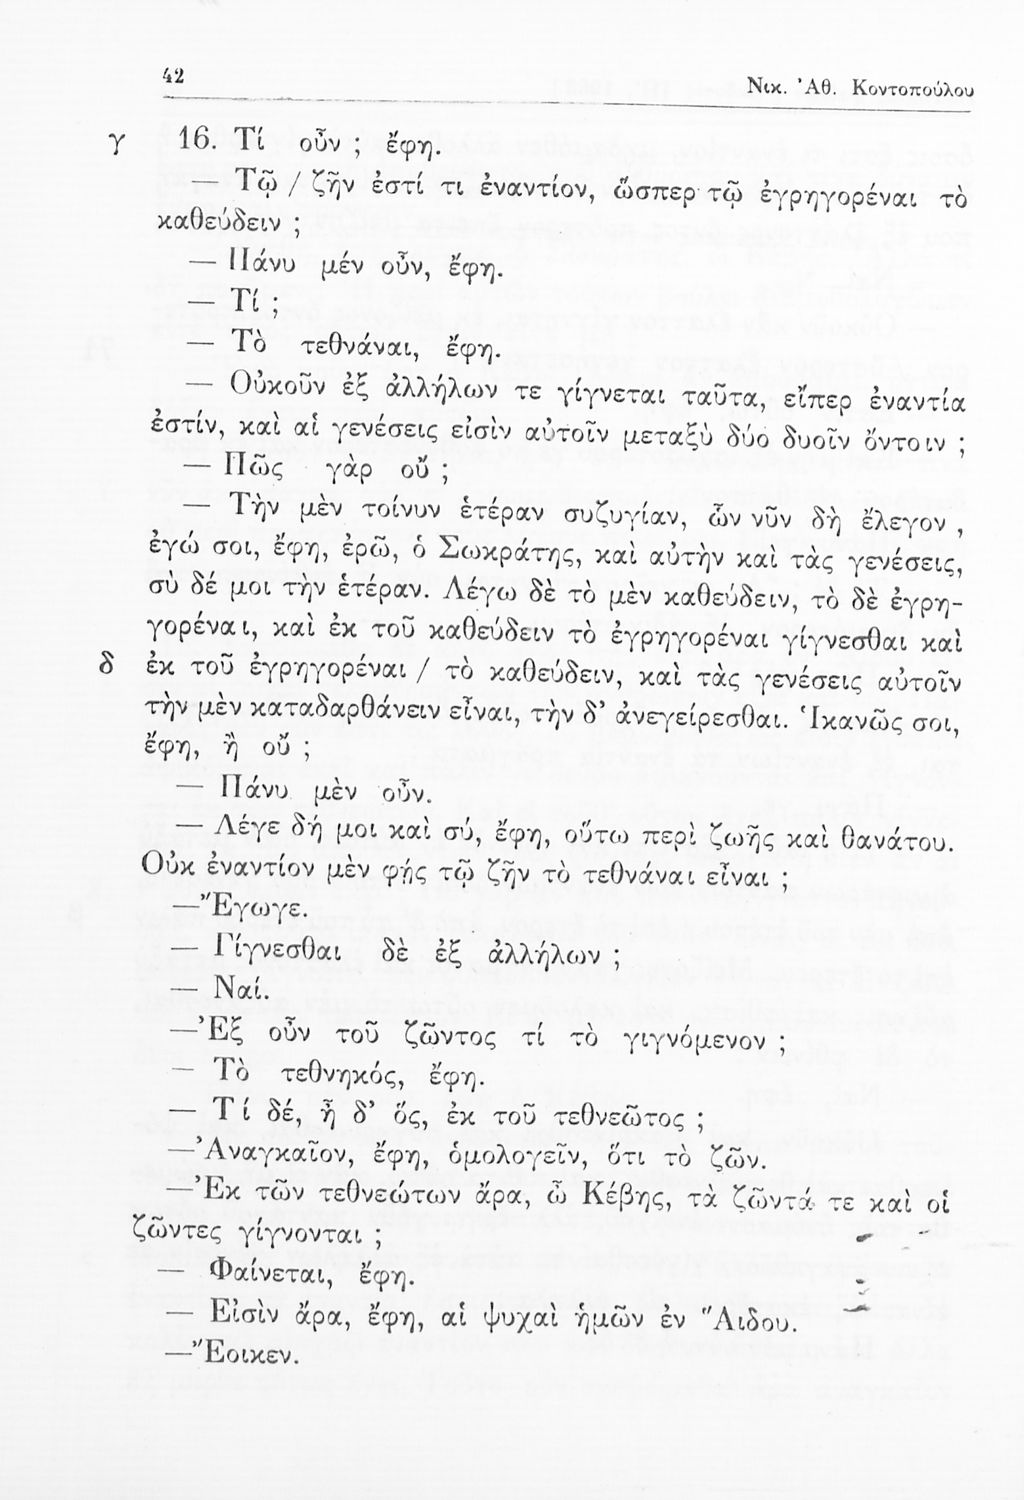 42
Νικ. Ἀθ. Κοντοπούλου
γ 16. Τί οὖν ; ἔφη.
Τῷ / ζῆν ἐστί τι ἐναντίον, ὥσπερ τῷ ἐγρηγορέναι τὸ
καθεύδειν ;
— Πάνυ μέν οὖν, ἔφη.
— Τί ;
— Τὸ τεθνάναι, ἔφη.
— Οὐκοῦν ἐξ ἀλλήλων τε γίγνεται ταῦτα, εἴπερ ἐναντία
ἐστίν, καὶ αἱ γενέσεις εἰσὶν αὐτοῖν μεταξὺ δύο δυοῖν ὄντοιν ;
— Πῶς γὰρ οὔ ;
— Τὴν μὲν τοίνυν ἑτέραν συζυγίαν, ὧν νῦν δὴ ἔλεγον ,
ἐγώ σοι, ἔφη, ἐρῶ, ὁ Σωκράτης, καὶ αὐτὴν καὶ τὰς γενέσεις,
σὺ δέ μοι τὴν ἑτέραν. Λέγω δὲ τὸ μὲν καθεύδειν, τὸ δὲ ἐγρη-
γορέναι, καὶ ἐκ τοῦ καθεύδειν τὸ ἐγρηγορέναι γίγνεσθαι καὶ
δ ἐκ τοῦ ἐγρηγορέναι / τὸ καθεύδειν, καὶ τὰς γενέσεις αὐτοῖν
τὴν μὲν καταδαρθάνειν εἶναι, τὴν δ’ ἀνεγείρεσθαι. Ἱκανῶς σοι,
ἔφη, ἢ οὔ ;
— Πάνυ μὲν οὖν.
— Λέγε δή μοι καὶ σύ, ἔφη, οὕτω περὶ ζωῆς καὶ θανάτου.
Οὐκ ἐναντίον μὲν φῂς τῷ ζῆν τὸ τεθνάναι εἶναι ;
— Ἔγωγε.
— Γίγνεσθαι δὲ ἐξ ἀλλήλων ;
— Ναί.
— Ἐξ οὖν τοῦ ζῶντος τί τὸ γιγνόμενον ;
— Τὸ τεθνηκός, ἔφη.
— Τί δέ, ἦ δ’ ὅς, ἐκ τοῦ τεθνεῶτος ;
— Ἀναγκαῖον, ἔφη, ὁμολογεῖν, ὅτι τὸ ζῶν.
— Ἐκ τῶν τεθνεώτων ἄρα, ὦ Κέβης, τὰ ζῶντά τε καὶ οἱ
ζῶντες γίγνονται ;
— Φαίνεται, ἔφη.
— Εἰσὶν ἄρα, ἔφη, αἱ ψυχαὶ ἡμῶν ἐν Ἅιδου.
— Ἔοικεν.